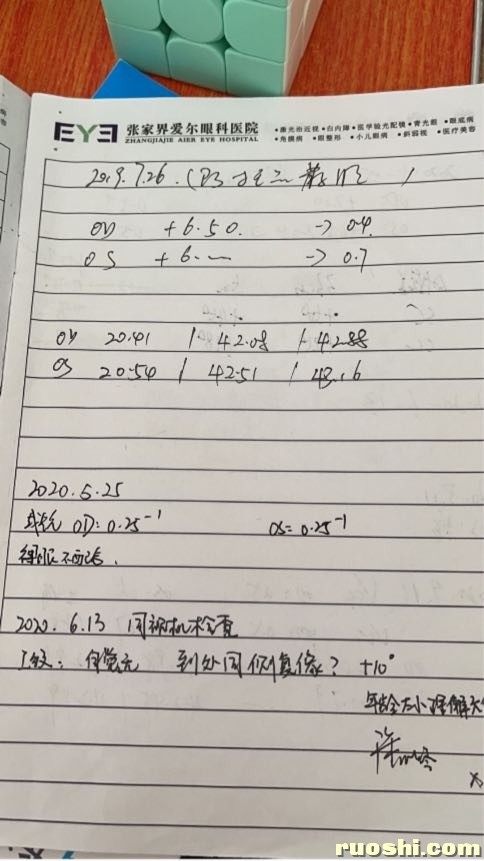 EYE 张家界爱尔眼科医院
ZHANGJIAJIE AIER EYE HOSPITAL
•激光治近视 •白内障 •医学验光配镜 •青光眼 •眼底病
•角膜病 •眼整形 •小儿眼病 •斜弱视 •医疗美容
2019.7.26.
OD +6.50. → 0.4.
OS +6. → 0.7
OD 20.41 / 42.08 / 42.88
OS 20.54 / 42.51 / 43.16
2020.5.25
OD: 0.25⁻¹ OS= 0.25⁻¹
2020.6.13 同视机检查
自觉 到处同侧复像? +10°
年龄太小 理解
ruoshi.com